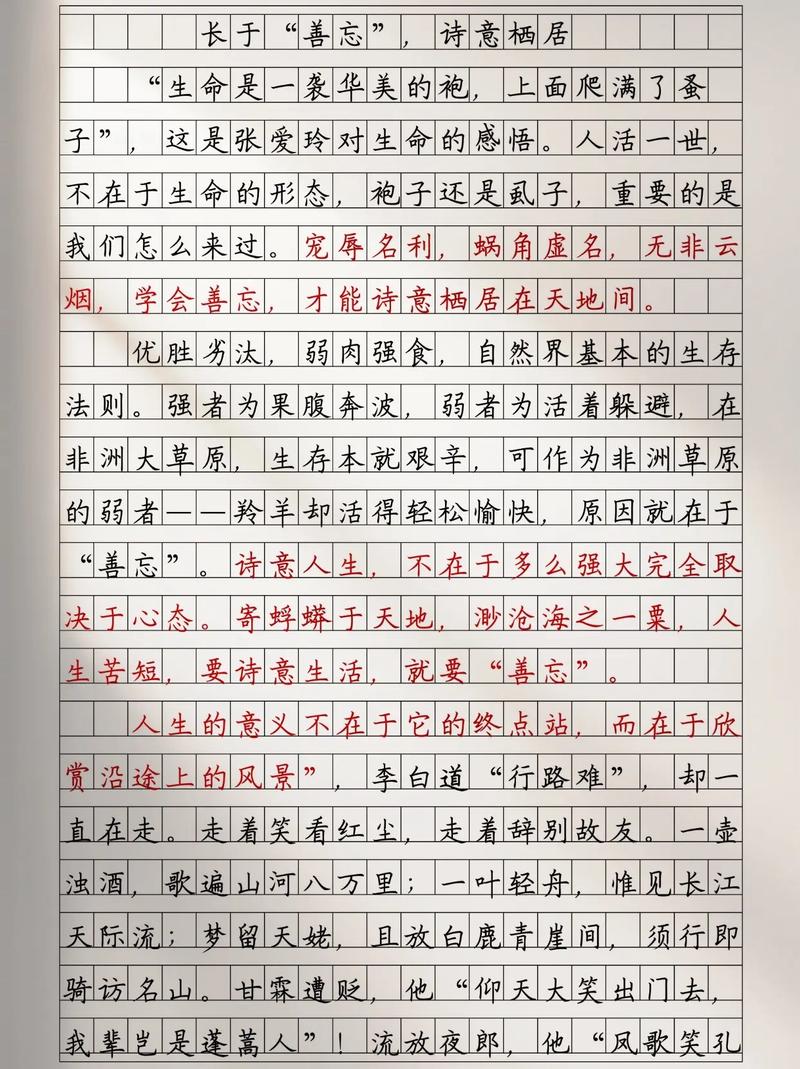 长于“善忘”，诗意栖居
“生命是一袭华美的袍，上面爬满了蚤
子”，这是张爱玲对生命的感悟。人活一世，
不在于生命的形态，袍子还是虱子，重要的是
我们怎么来过。宠辱名利，蜗角虚名，无非云
烟，学会善忘，才能诗意栖居在天地间。
优胜劣汰，弱肉强食，自然界基本的生存
法则。强者为果腹奔波，弱者为活着躲避，在
非洲大草原，生存本就艰辛，可作为非洲草原
的弱者——羚羊却活得轻松愉快，原因就在于
“善忘”。诗意人生，不在于多么强大完全取
决于心态。寄蜉蝣于天地，渺沧海之一粟，人
生苦短，要诗意生活，就要“善忘”。
人生的意义不在于它的终点站，而在于欣
赏沿途上的风景”，李白道“行路难”，却一
直在走。走着笑看红尘，走着辞别故友。一壶
浊酒，歌遍山河八万里；一叶轻舟，惟见长江
天际流；梦留天姥，且放白鹿青崖间，须行即
骑访名山。甘霖遭贬，他“仰天大笑出门去，
我辈岂是蓬蒿人”！流放夜郎，他“凤歌笑孔